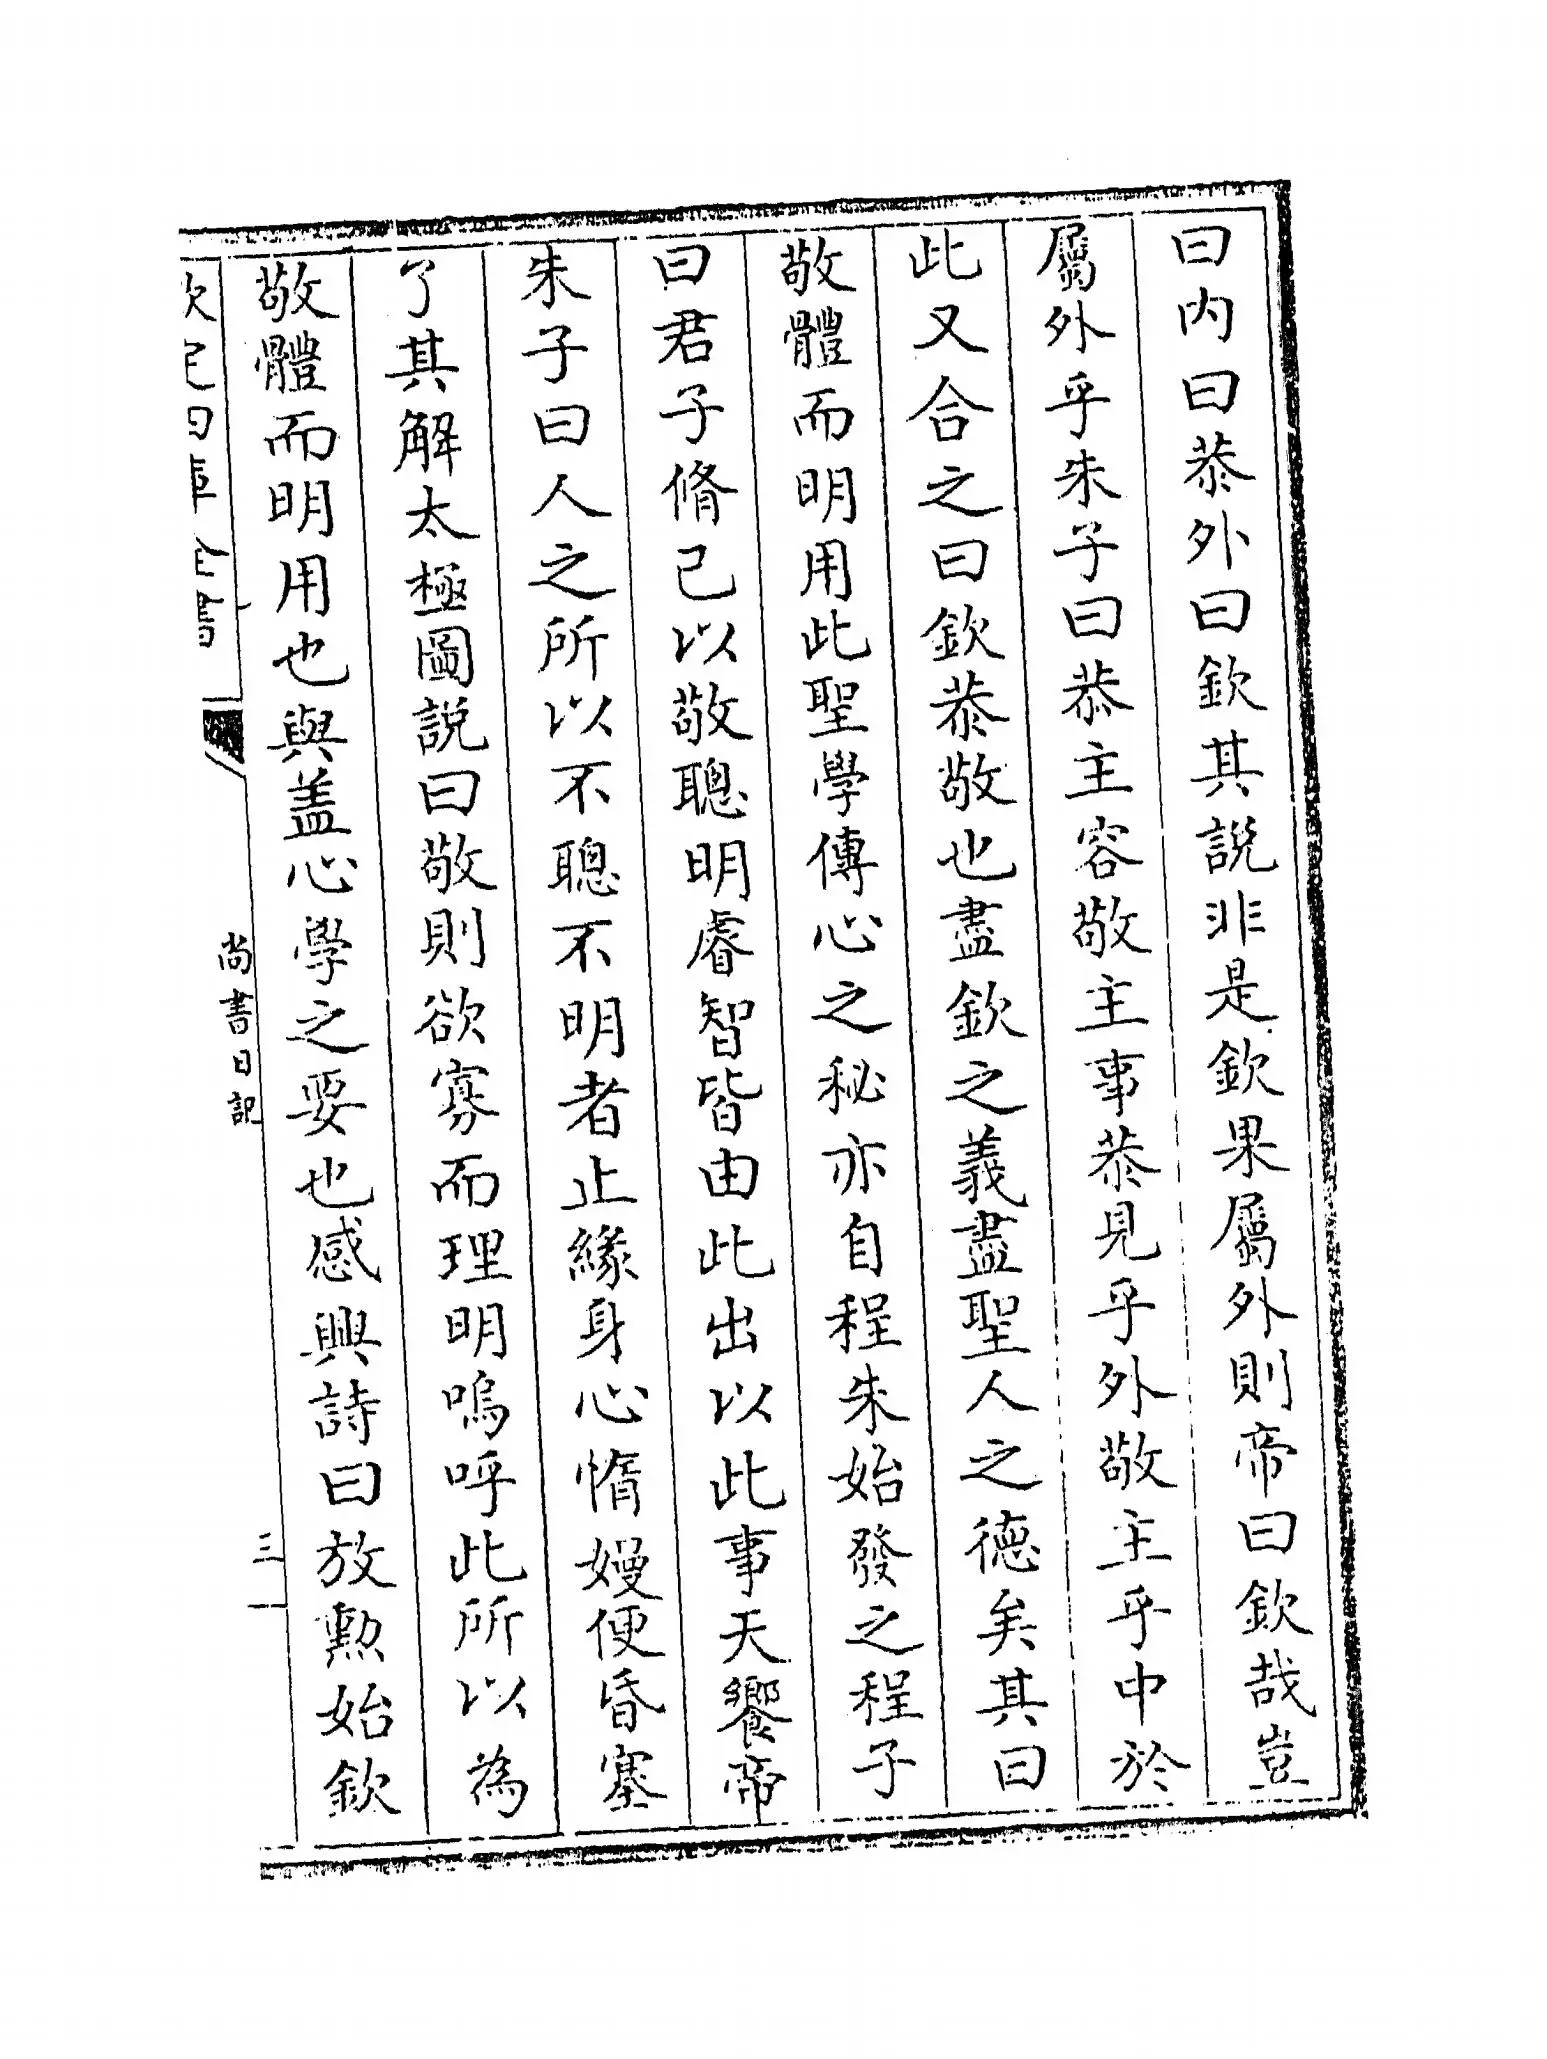 曰内曰恭外曰欽其説非是欽果屬外則帝曰欽哉豈
屬外乎朱子曰恭主容敬主事恭見乎外敬主乎中於
此又合之曰欽恭敬也盡欽之義盡聖人之德矣其曰
敬體而明用此聖學傳心之秘亦自程朱始發之程子
曰君子脩己以敬聰明睿智皆由此出以此事天饗帝
朱子曰人之所以不聰不明者止緣身心惰嫚便昏塞
了其解太極圖説曰敬則欲寡而理明嗚呼此所以為
敬體而明用也與盖心學之要也感興詩曰放勲始欽
欽定四庫全書
尚書日記
三